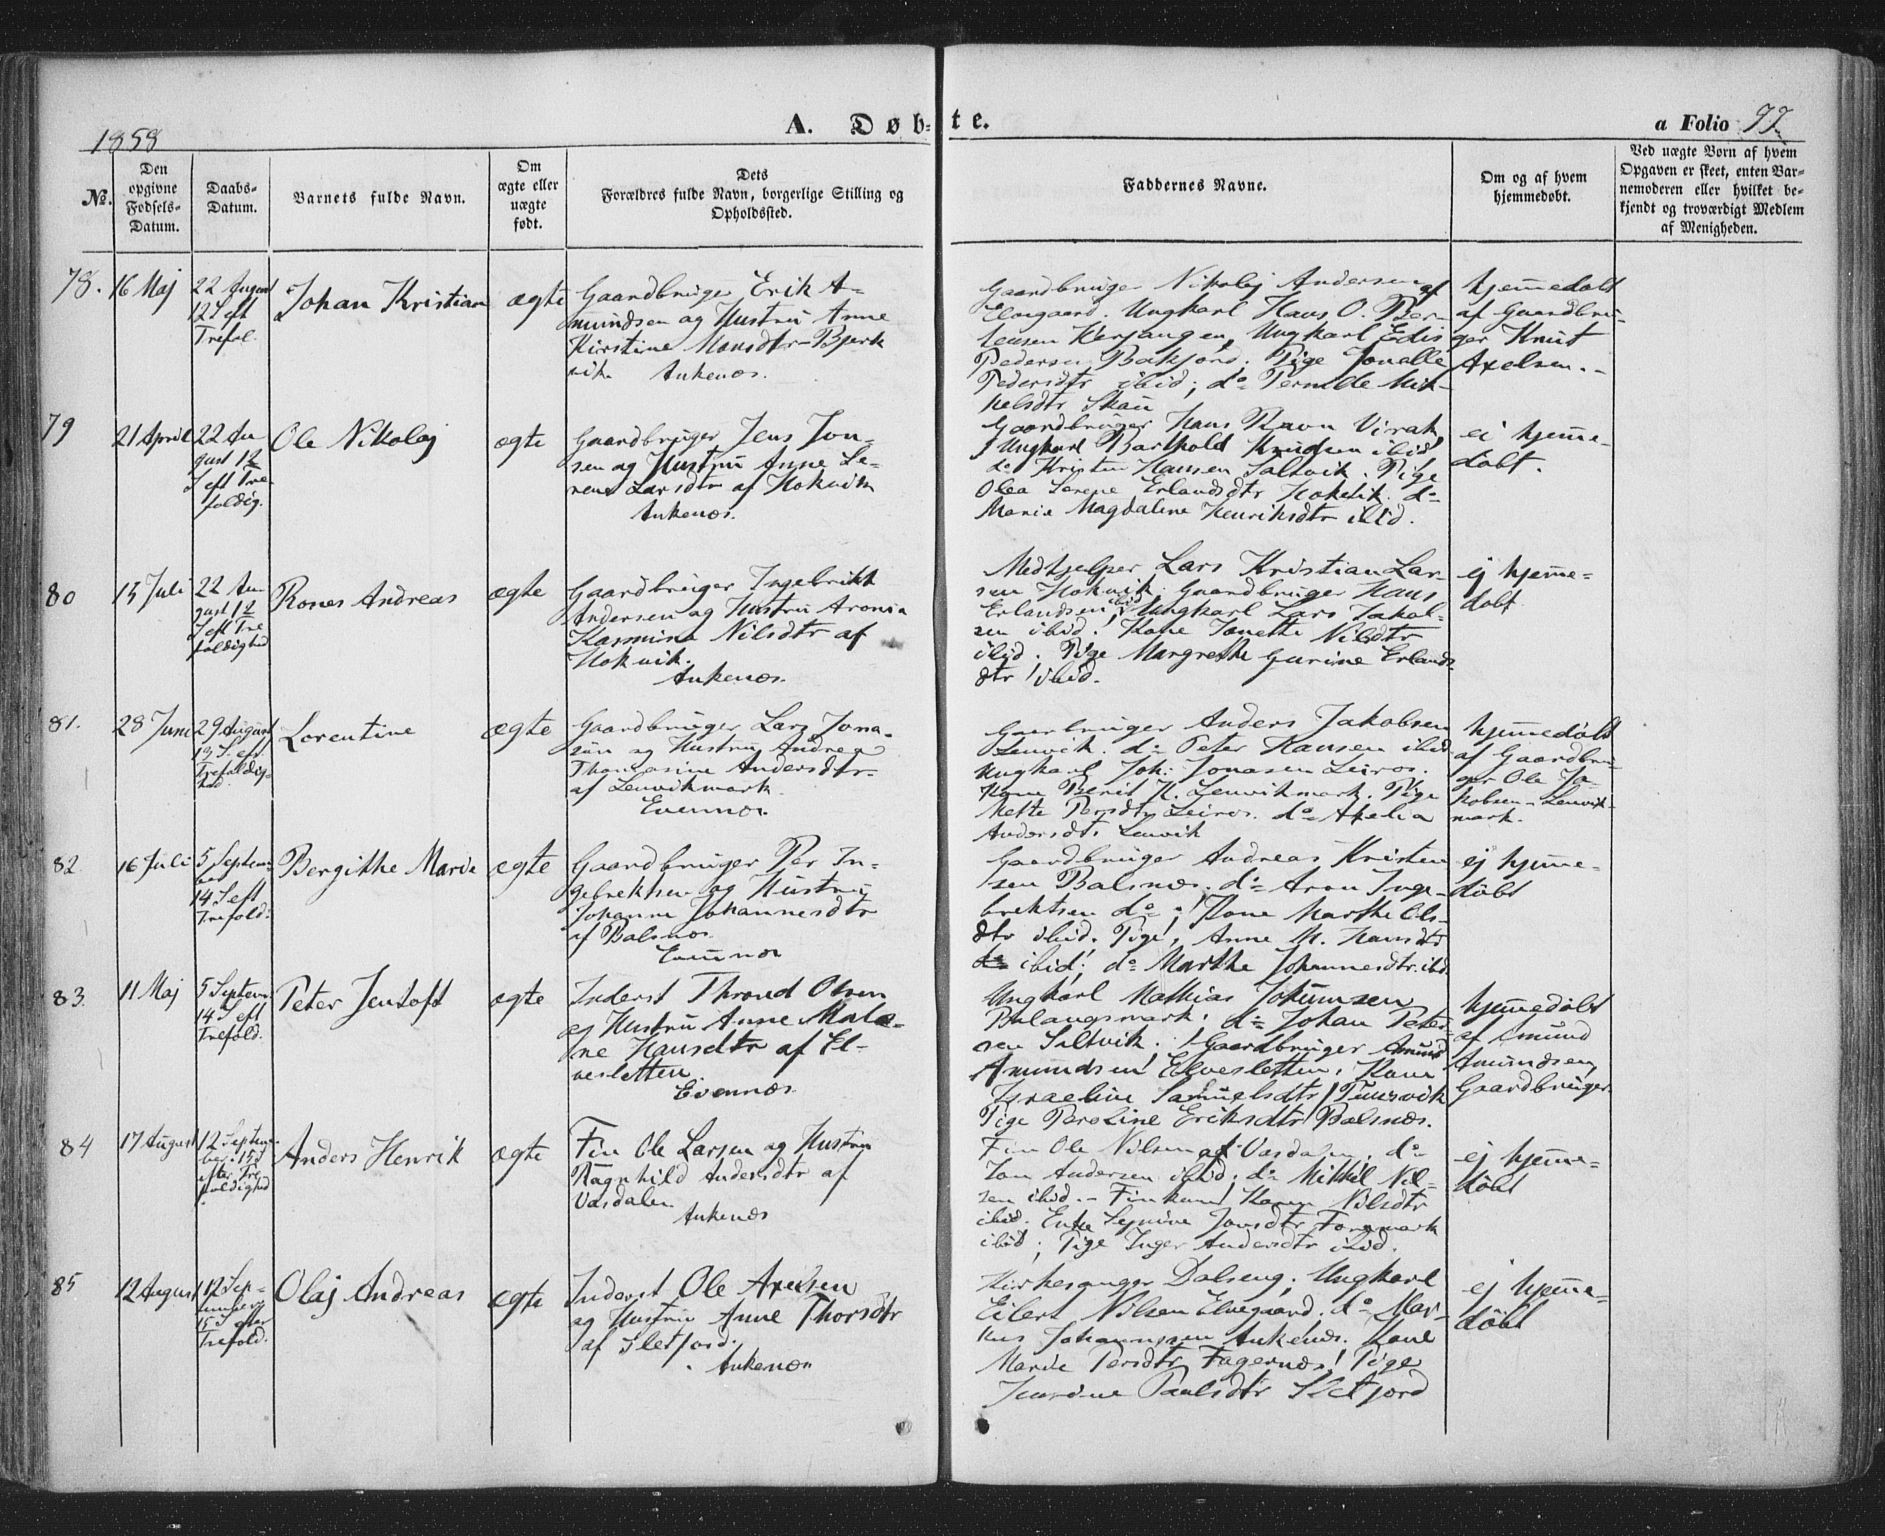 1858
A. Døb-te.
a Folio 97
№.
Den opgivne Fødsels-Datum.
Daabs-Datum.
Barnets fulde Navn.
Om ægte eller uægte født.
Dets Forældres fulde Navn, borgerlige Stilling og Opholdssted.
Faddernes Navne.
Om og af hvem hjemmedøbt.
Ved uægte Børn af hvem Opgaven er skeet, enten Barnemoderen eller hvilket bekjendt og troværdigt Medlem af Menigheden.
78. 16 Maj
22 August
12 S eft
Trefol.
Johan Kristian
ægte
Gaardbruger Erik A-
mundsen og Hustru Anne
Kirstine Monsdtr - Bjerk
vik. Ankenæs.
Gaardbruger Nikolaj Andersen af
Elvegaard. Ungkarl Hans O. Ber-
Ungkarl Edis
Pedersen
Tige Jonelle
Pedersdtr ibid; do Pernille Mik-
kelsdtr Skau
hjemmedøbt
af Gaardbru-
ger Knut
Axelsen.-
79
21 April
22 Au
gust 12
S eft Tre
foldig.
Ole Nikolaj
ægte
Gaardbruger Jens Jon-
sen og Hustru Anne Le-
rene Larsdtr af Hokvik
Ankenæs.
Gaardbruger Hans Ravn Virak
Ungkarl Barthold Knudsen ibid
do Kristen Hansen Saltvik. Pige
Olea Serene Erlandsdtr Hokvik. do
Maria Magdalene Henriksdtr ibid.
ei hjemme-
døbt.
80
15 Juli
22 Au
gust 12
S eft Tre
foldighed
Rones Andreas
ægte
Gaardbruger Ingebrikt
Andersen og Hustru Aronia
Kasmina Nilsdtr af
Hokvik.
Ankenæs.
Medhjelper Lars Kristian Lar-
sen Hokvik. Gaardbruger Hans
Erlandsen ibid Ungkarl Lars Jakob-
sen ibid. Kone Jonette Nilsdtr
ibid. Pige Margrethe Gurine Erlands
dtr ibid.
ej hjemme-
døbt
81.
28 Juni
29 August
13 S. eft
Trefoldig-
hed
Lorentine
ægte
Gaardbruger Lars Jona-
sen og Hustru Andrea
Thomasine Andersdtr.
af Lenvikmark.
Evennæs.
Gaarbruger Anders Jakobsen
Lenvik. do Peter Hansen ibid
Ungkarl Joh: Jonasen Leiros.
Kone Berit K. Lenvikmark. Pige
Mette Persdtr Leiros. do Axelia
Andersdtr Lenvik
hjemmedøbt
af Gaardbru-
ger Ole Ja-
kobsen - Lenvik-
mark.
82
16 Juli
5 Septem-
ber
14 S eft
Trefold.
Bergithe Marie
ægte
Gaardbruger Per In-
gebrektsen og Hustru
Johanne Johannesdtr
af Balsnæs
Evennæs
Gaardbruger Andreas Kristen
sen Balsnæs. do Aron Inge-
brektsen do; Kone Marthe Ols-
dtr ibid. Pige, Anne M. Hansdtr
ibid; do Marthe Johannesdtr. ibid.
ej hjemme-
døbt
83.
11 Maj
5 Septem.
14 S eft
Trefold.
Peter Jentoft
ægte
Inderst Thrond Olsen
og Hustru Anne Male-
ne Hansdtr af El-
vesletten
Evennæs.
Ungkarl Mathias Johannsen
do Johan Peter-
sen Saltvik. Gaardbruger Amund
Amundsen Elvesletten, Kone
Israeline Samuelsdtr
Pige Peroline Eriksdtr Balsnæs.
hjemmedøbt
af Amund
Amundsen,
Gaardbruger.
84
17 August
12 Septem-
ber. 15 S
efter Tre
foldighed
Anders Henrik
ægte
Fin Ole Larsen og Hustru
Ragnhild Andersdtr af
Vasdalen
Ankenæs
Fin Ole Nilsen af Vasdalen. do
Jon Andersen ibid; do Mikkel Nil-
sen ibid. - Finkone Karen Nilsdtr
ibid. Enke Jonsdtr
ibid; Pige Inger Andersdtr ibid.
ej hjemme-
døbt
85
12 August
12 Sep-
tember
15 S efter
Trefold.
Olaj Andreas
ægte
Inderst Ole Axelsen
og Hustru Anne Thorsdtr
af Sletjord.
Ankenæs
Kirkesanger Dalseng; Ungkarl
Eilert Nilsen Elvegaard. do Mar-
kus Johannssen Ankenæs. Kone
Marie Persdtr Fagernæs; Pige
Jensine Paulsdtr Sletjord
ej hjemme-
døbt